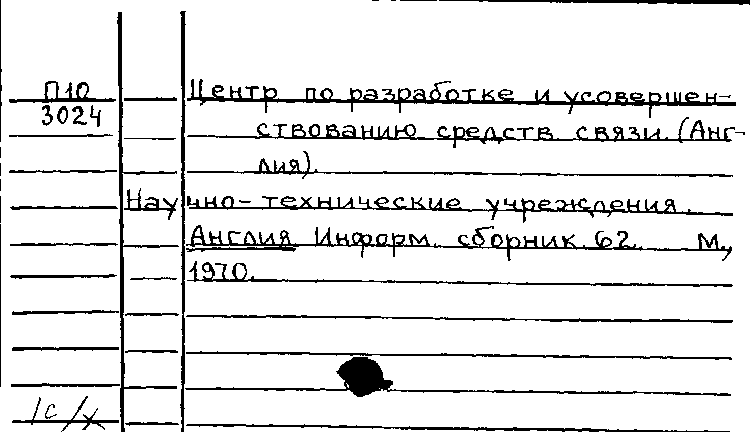 П10 Центр по разработке и усовершен-
3024 ствованию средств связи. (Анг-
лия).
Научно-технические учреждения.
Англия Информ. сборник 62. М.,
1970.
1с/х